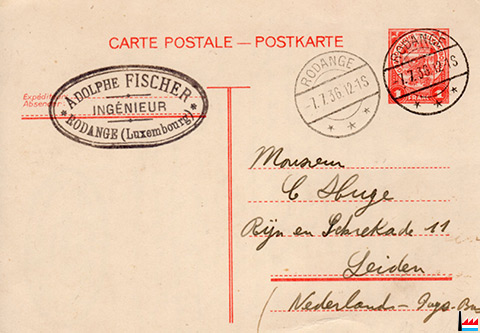 CARTE POSTALE — POSTKARTE
RODANGE
-7.7.36.12-1S
* * *
RODANGE
-7.7.36.12-1S
* * *
Expédit
Absender:
ADOLPHE FISCHER
INGÉNIEUR
* RODANGE (Luxembourg) *
Monsieur
C
Rijn en Schiekade 11
Leiden
(Nederlands - Pays-Bas